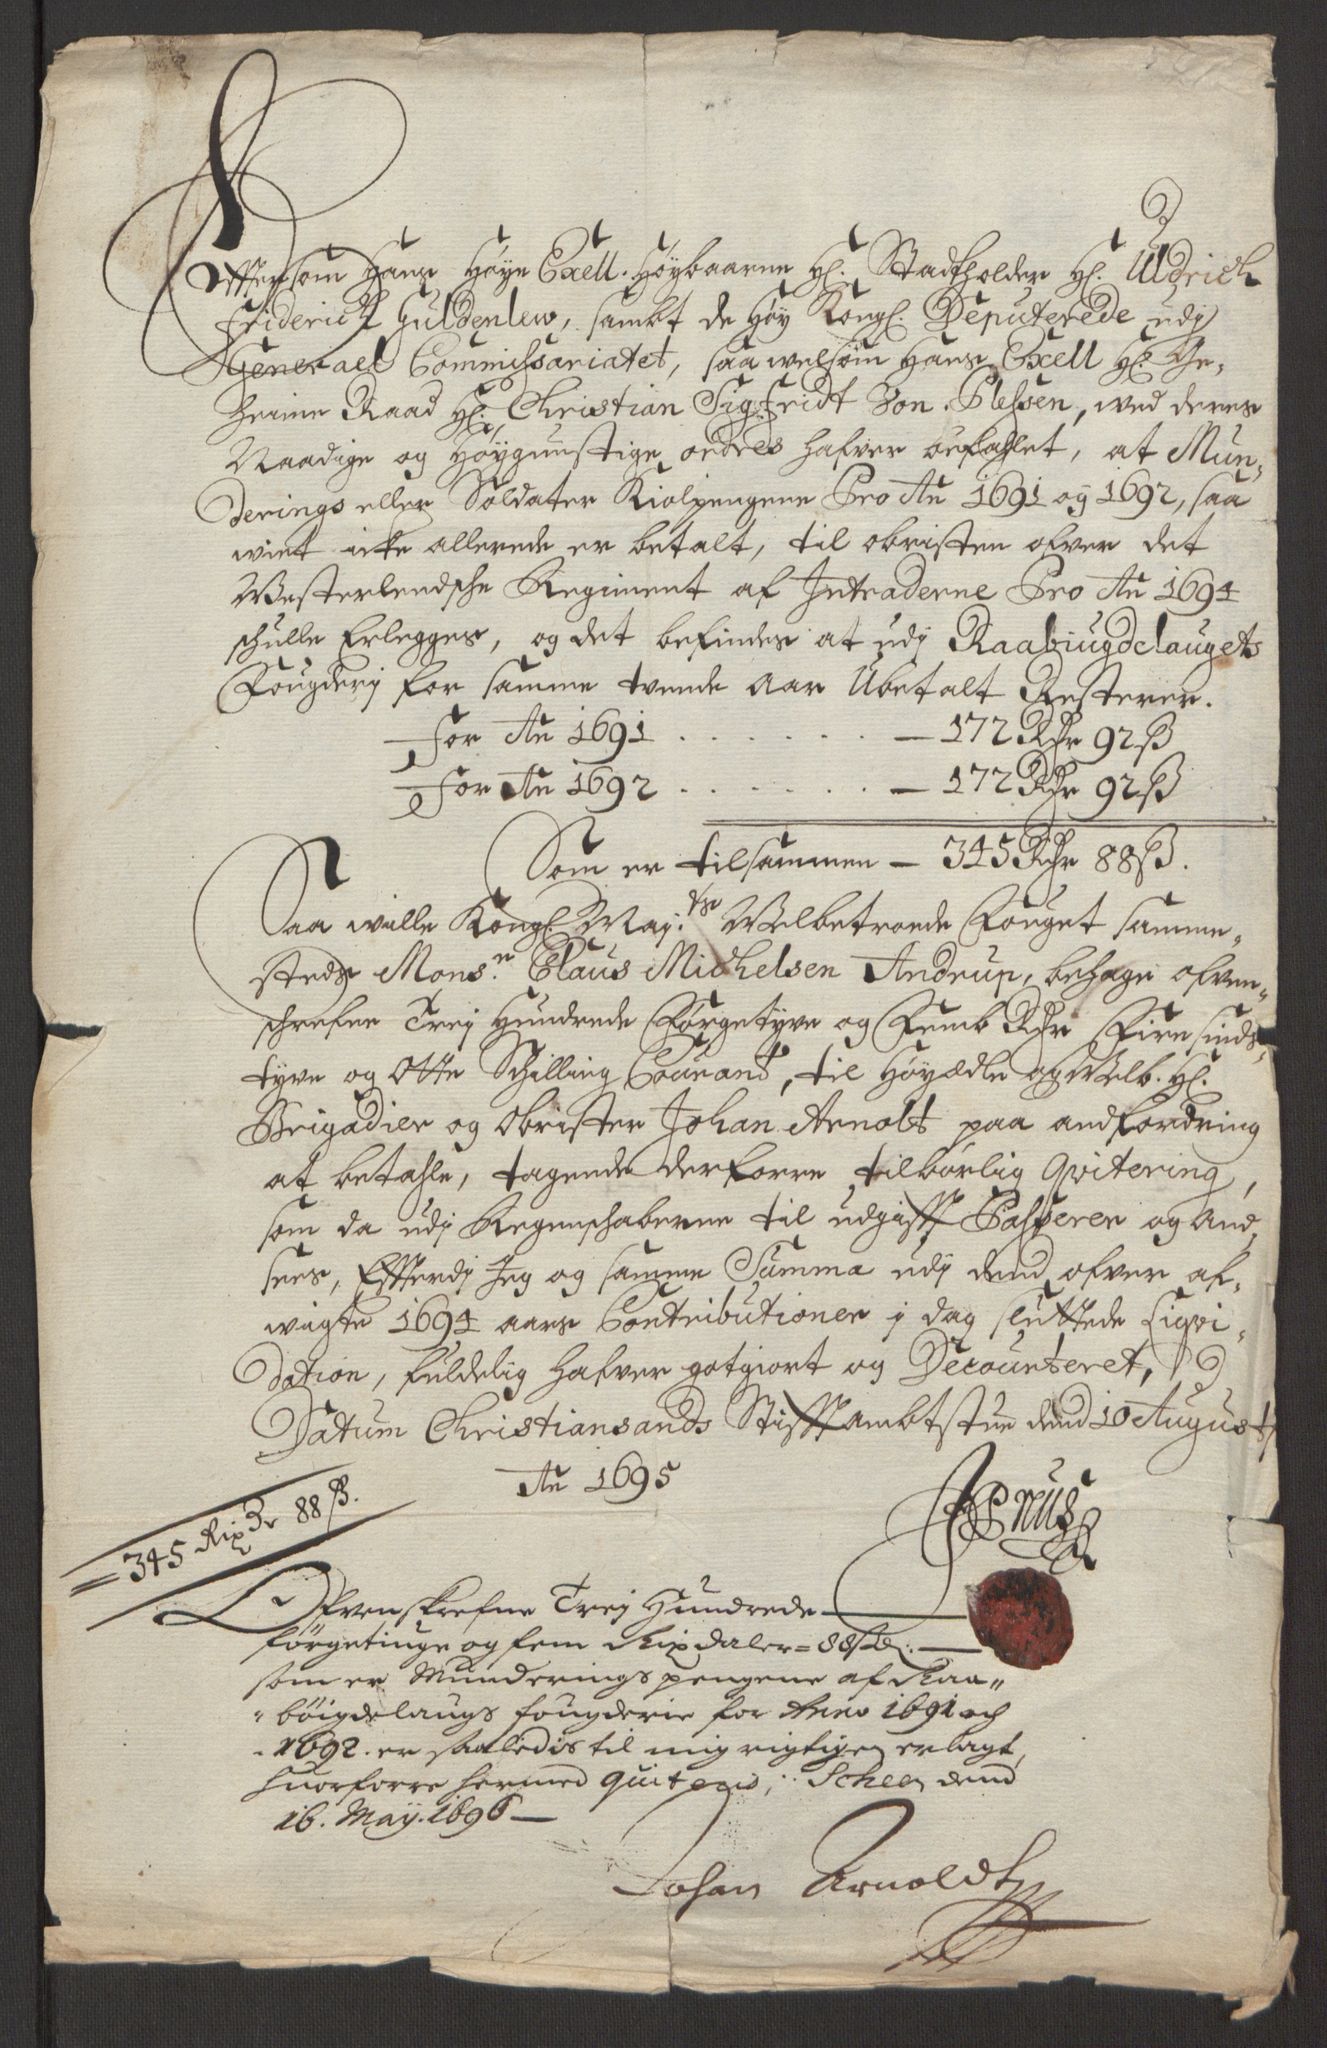 Effersom Hans Høye Excll. Høybaarne Hr. Stadtholder Hr. Uldrich
Friderich Guldenlew, sambt de Høy Kongl. Deputerede udj
Generael Commissariatet, saa welsom Hans Excell Hr. Ge-
heime Raad Hr. Christian Sigfridt Von Plessen, wed deres
Naadige og Høygunstige ordres hafver befahlet, at Mun-
derings eller Soldater Kiolpengene Pro Ao 1691 og 1692, saa
wiet icke allerede er betalt, til obristen ofver det
Westerlendsche Regiment af Intraderne Pro Ao 1694
schulle Erlegges, og det befindes at udj Raabiugdelaugets
Fougderj for samme tvende Aar Ubetalt Resterer.
for Ao 1691 . . . . . . — 172 Rdr 92 ß
for Ao 1692 . . . . . . — 172 Rdr 92 ß
Som er tilsammen — 345 Rdr 88 ß.
Saa wille Kongl. May.ts Welbetroede Fouget samme-
steds Mons.r Claus Michelsen Andrup, behage ofven-
schrefne Trej Hundrede Førgetyve og Femb Rdr Fire sinds-
tyve og Otte Schilling Courant, til Høyædle og Welb. Hr.
Brigadier og Obrister Johan Arnolt paa andfordring
at betahle, tagende derforre tilbørlig Qvitering,
som da udj Regenschaberne til udgifft Passerer og And-
sees, Efterdj Jeg og samme Summa udj dend ofver af-
wigte 1694 aars Contributioner j dag sluttede Liqvi-
dation, fuldelig hafver gotgiort og Decounteret,
Datum Christiansands Stifftambtstue dend 10 Augustj
Ao 1695
= 345 Rixdr 88 ß.
Ofvenskrefne Trej Hundrede
førgetiuge og fem Rixdaler = 88 ß
som er Munderings pengene af Raa-
bøigdelaugs fougderie for Anno 1691 och
1692. er saaledis til mig rigtigen erlagt,
huorforre hermed quiteris, Scheen dend
16. Maÿ. 1696 —
Johan Arnoldt